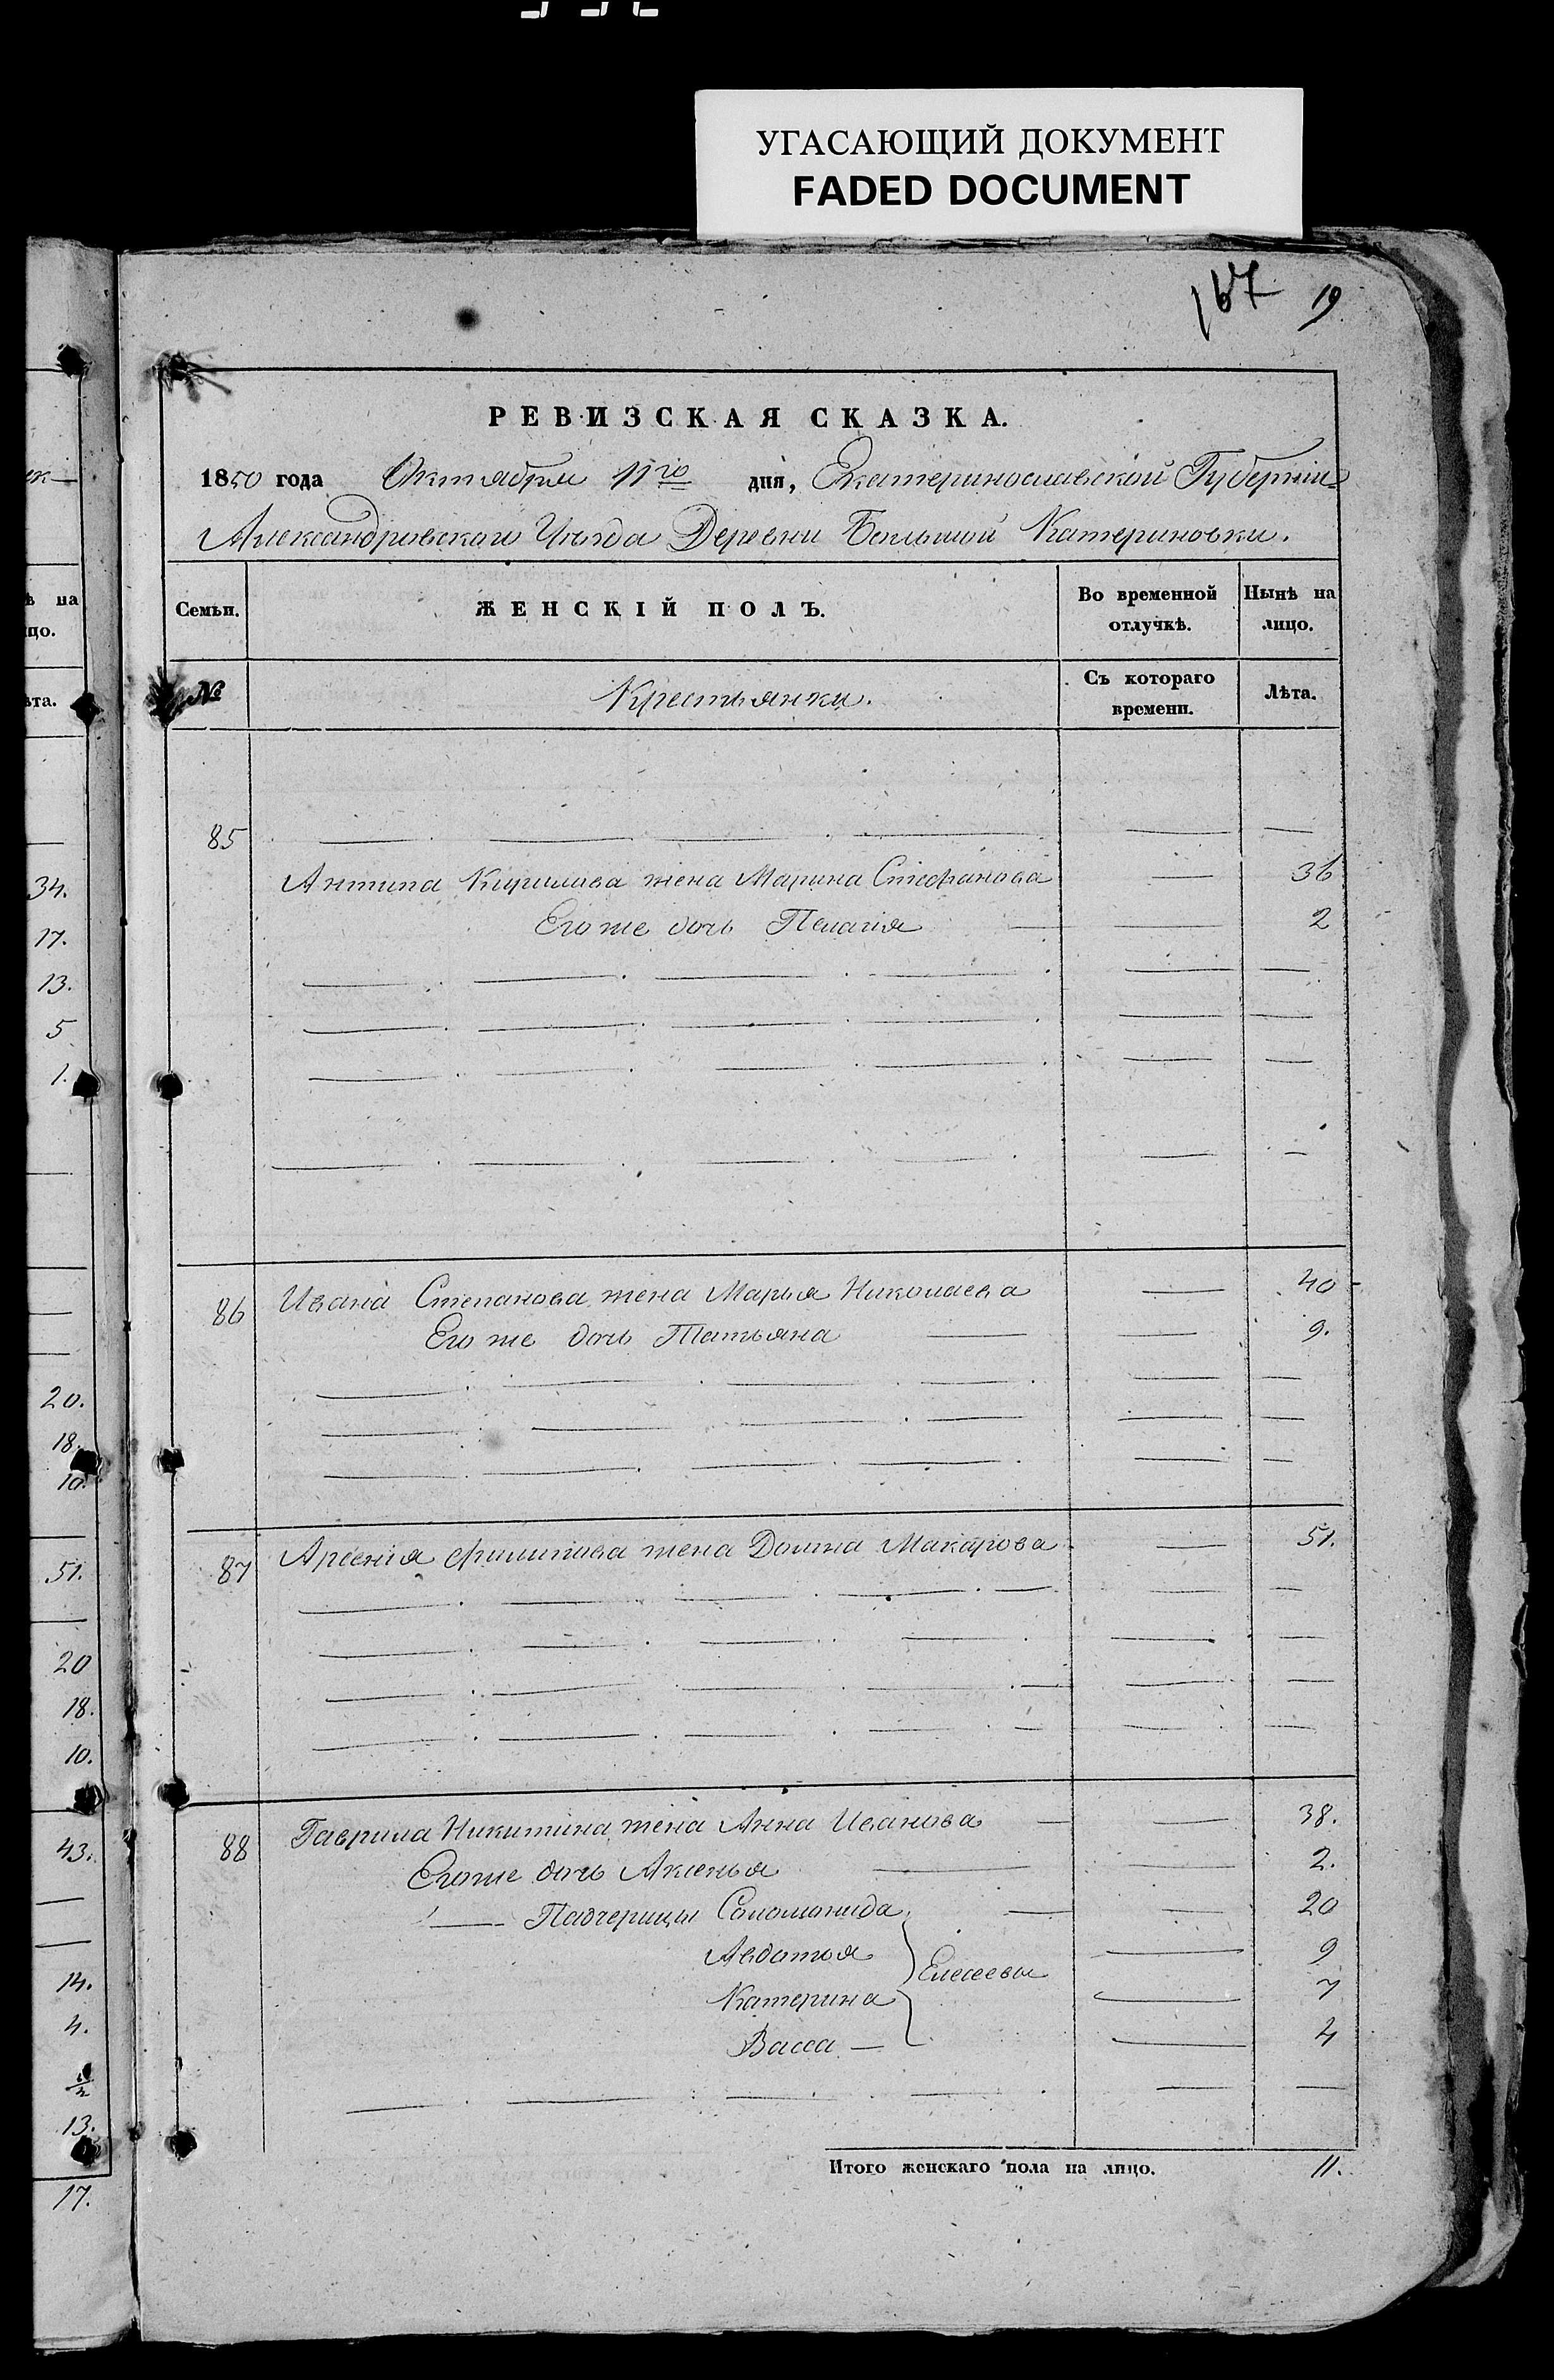 УГАСАЮЩИЙ ДОКУМЕНТ
FADED DOCUMENT
167 19
РЕВИЗСКАЯ СКАЗКА.
1850 года Октября 11го дня, Екатеринославской Губерніи
Александровскаго Уѣзда Деревни Большой Катериновки.
Семьи. ЖЕНСКІЙ ПОЛЪ. Во временной отлучкѣ. Нынѣ на лицо.
№ Крестьянки. Съ котораго времени. Лѣта.
85
Антипа Кирилова жена Марина Стефанова — 36
Его же дочь Пелагія — 2
86 Ивана Степанова жена Марья Николаева — 40
Его же дочь Татьяна — 9.
87 Арсенія Филипова жена Домна Макарова — 51.
88 Гаврила Никитина жена Анна Иванова — 38.
Его же дочь Аксенья — 2.
— Падчерицы Соломонида — 20
Авдотья — 9
Елесеевы
Катерина — 7
Васса — 4
Итого женскаго пола на лицо. 11.
ѣ на
цо.
ѣта.
34.
17.
13.
5
1.
20.
18.
10.
51.
20
18.
10.
43.
14.
4.
13.
17.